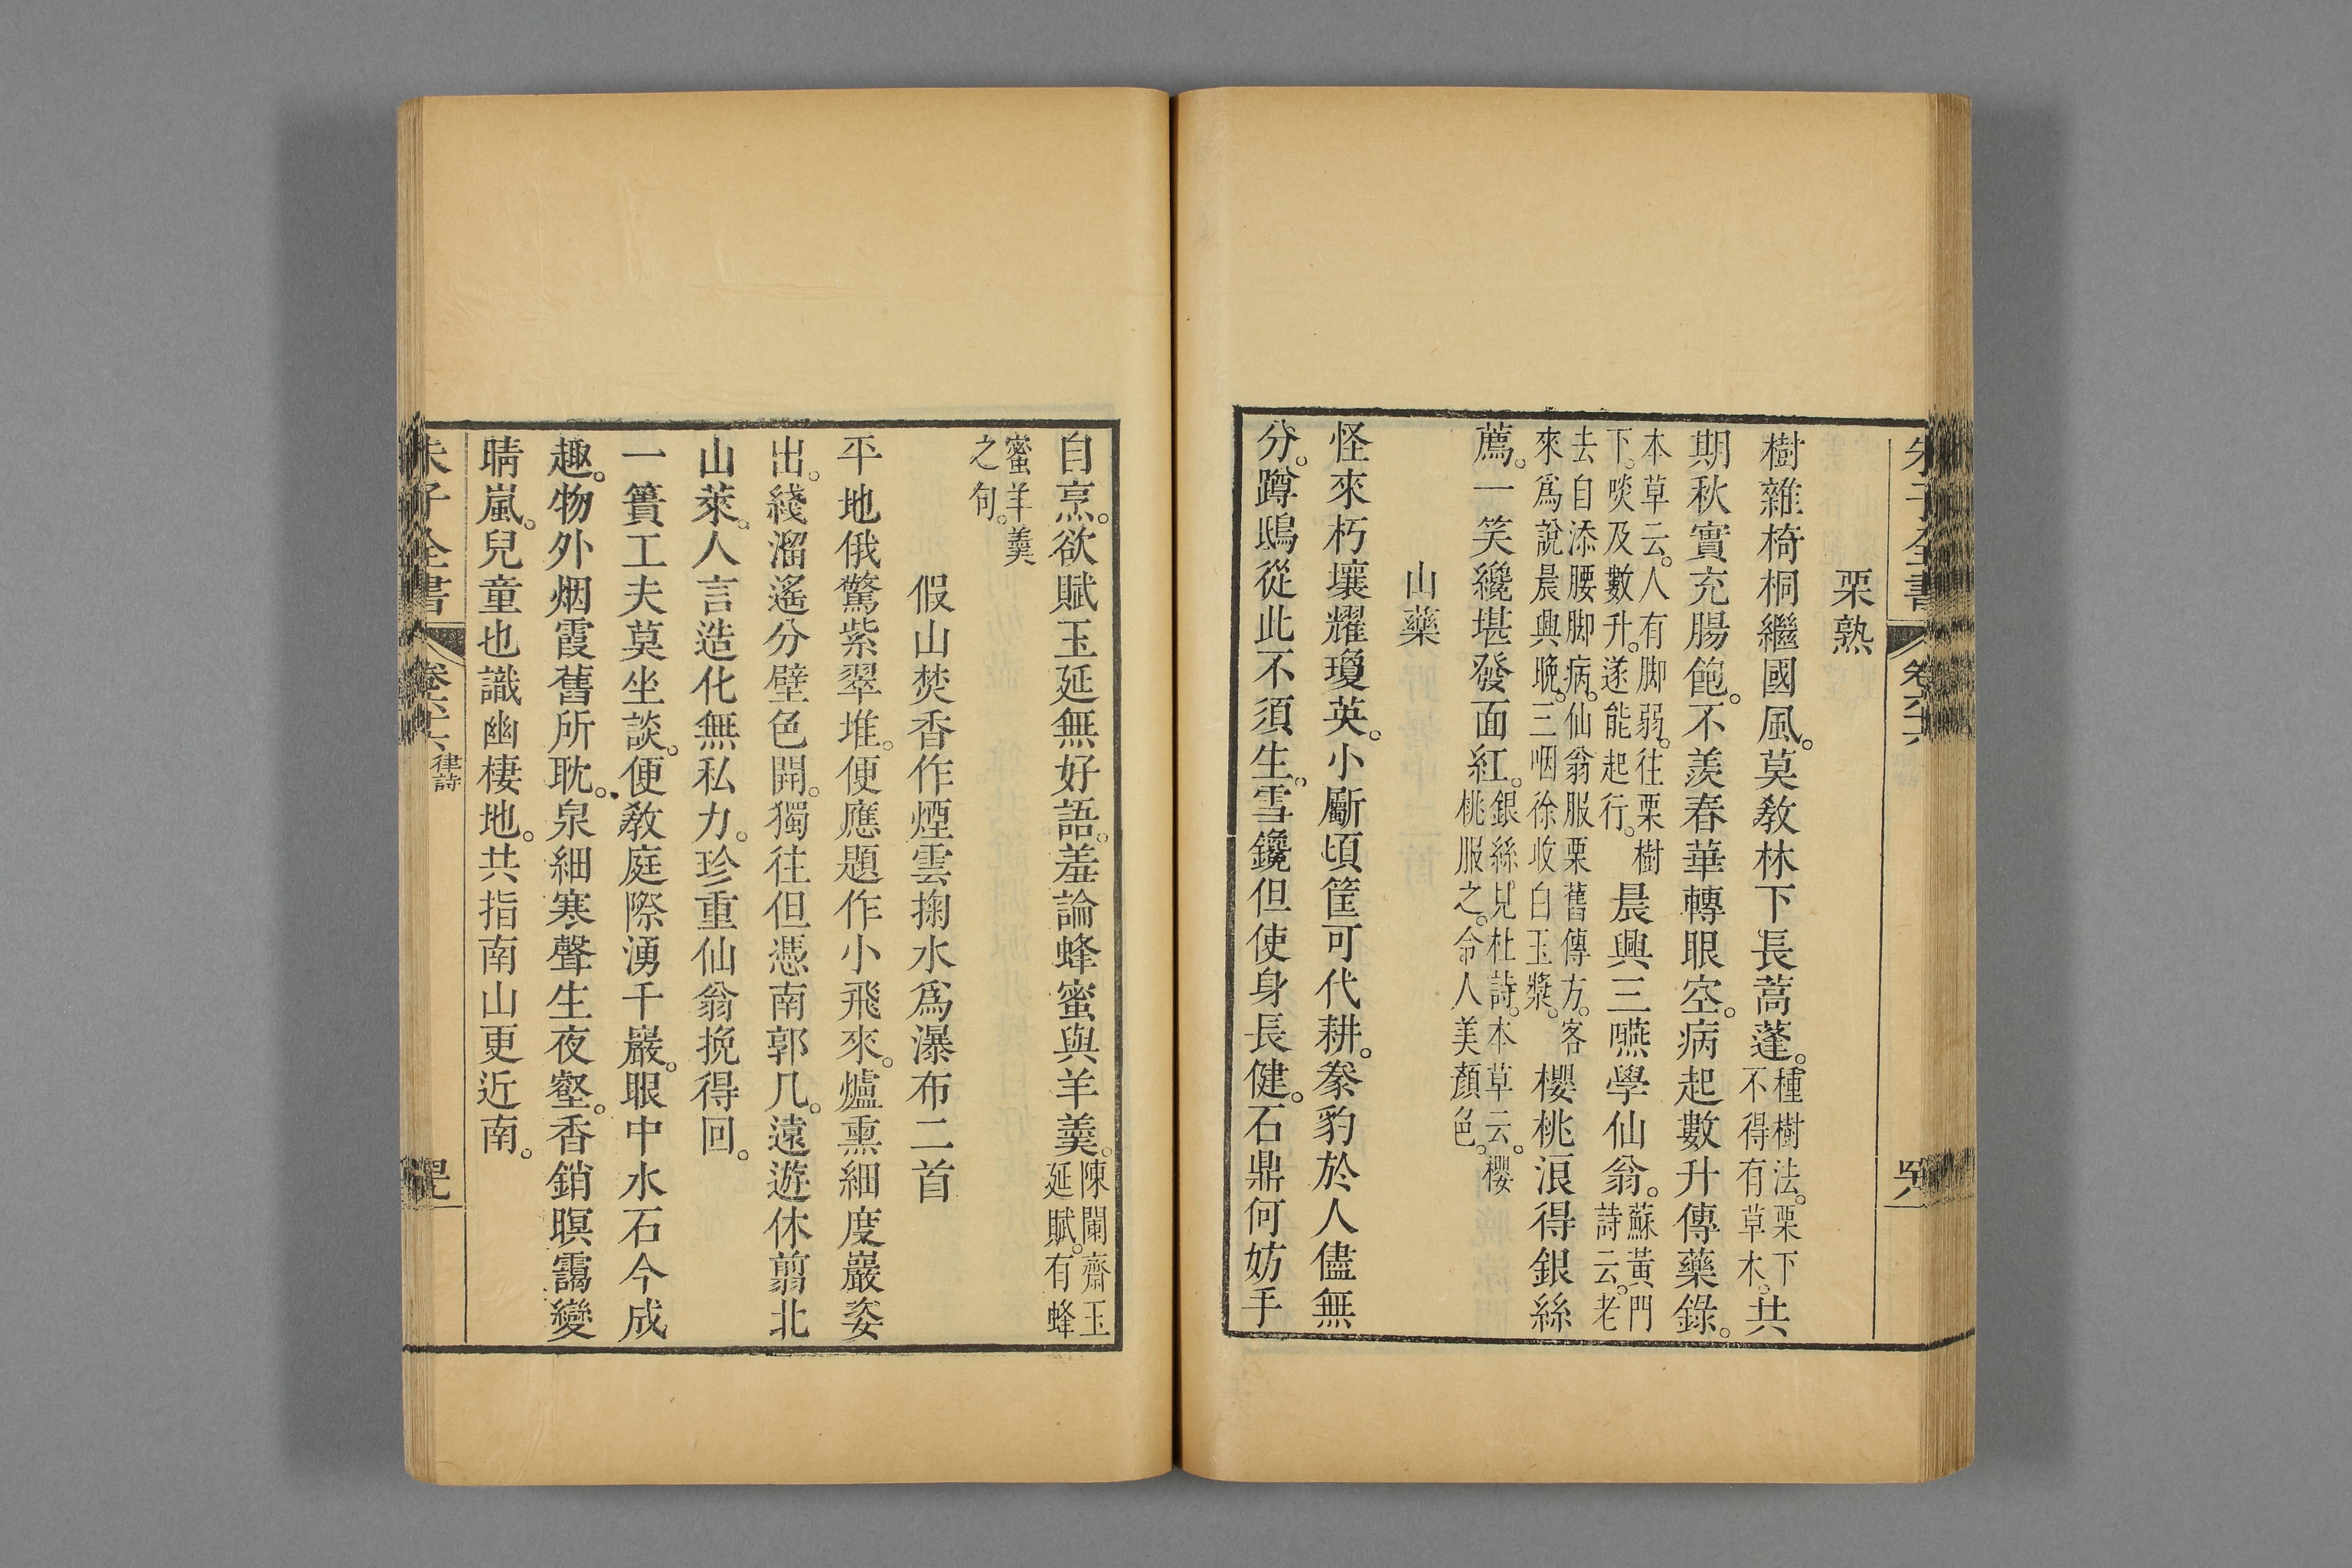 朱子全書 卷六十六
栗熟
樹雜椅桐繼國風。莫敎林下長蒿蓬。種樹法。栗下不得有草木。共
期秋實充腸飽。不羨春華轉眼空。病起數升傳藥錄。
本草云。人有脚弱。往栗樹下。啖及數升。遂能起行。晨興三嚥學仙翁。蘇黃門詩云。老
去自添腰脚病。仙翁服栗舊傳方。客來爲說晨興晚。三咽徐收白玉漿。櫻桃浪得銀絲
薦。一笑纔堪發面紅。銀絲。見杜詩。本草云。櫻桃服之。令人美顏色。
山藥
怪來朽壤耀瓊英。小斸頃筐可代耕。豢豹於人儘無
分。蹲鴟從此不須生。雪鑱但使身長健。石鼎何妨手
自烹。欲賦玉延無好語。羞論蜂蜜與羊羹。陳闌齋玉延賦。有蜂
蜜羊羹之句。
假山焚香作煙雲掬水爲瀑布二首
平地俄驚紫翠堆。便應題作小飛來。爐熏細度巖姿
出。綫溜遙分壁色開。獨往但憑南郭几。遠遊休剪北
山萊。人言造化無私力。珍重仙翁挽得回。
一簣工夫莫坐談。便敎庭際湧千巖。眼中水石今成
趣。物外烟霞舊所耽。泉細寒聲生夜壑。香銷暝靄變
晴嵐。兒童也識幽棲地。共指南山更近南。
朱子全書 卷六十六 律詩